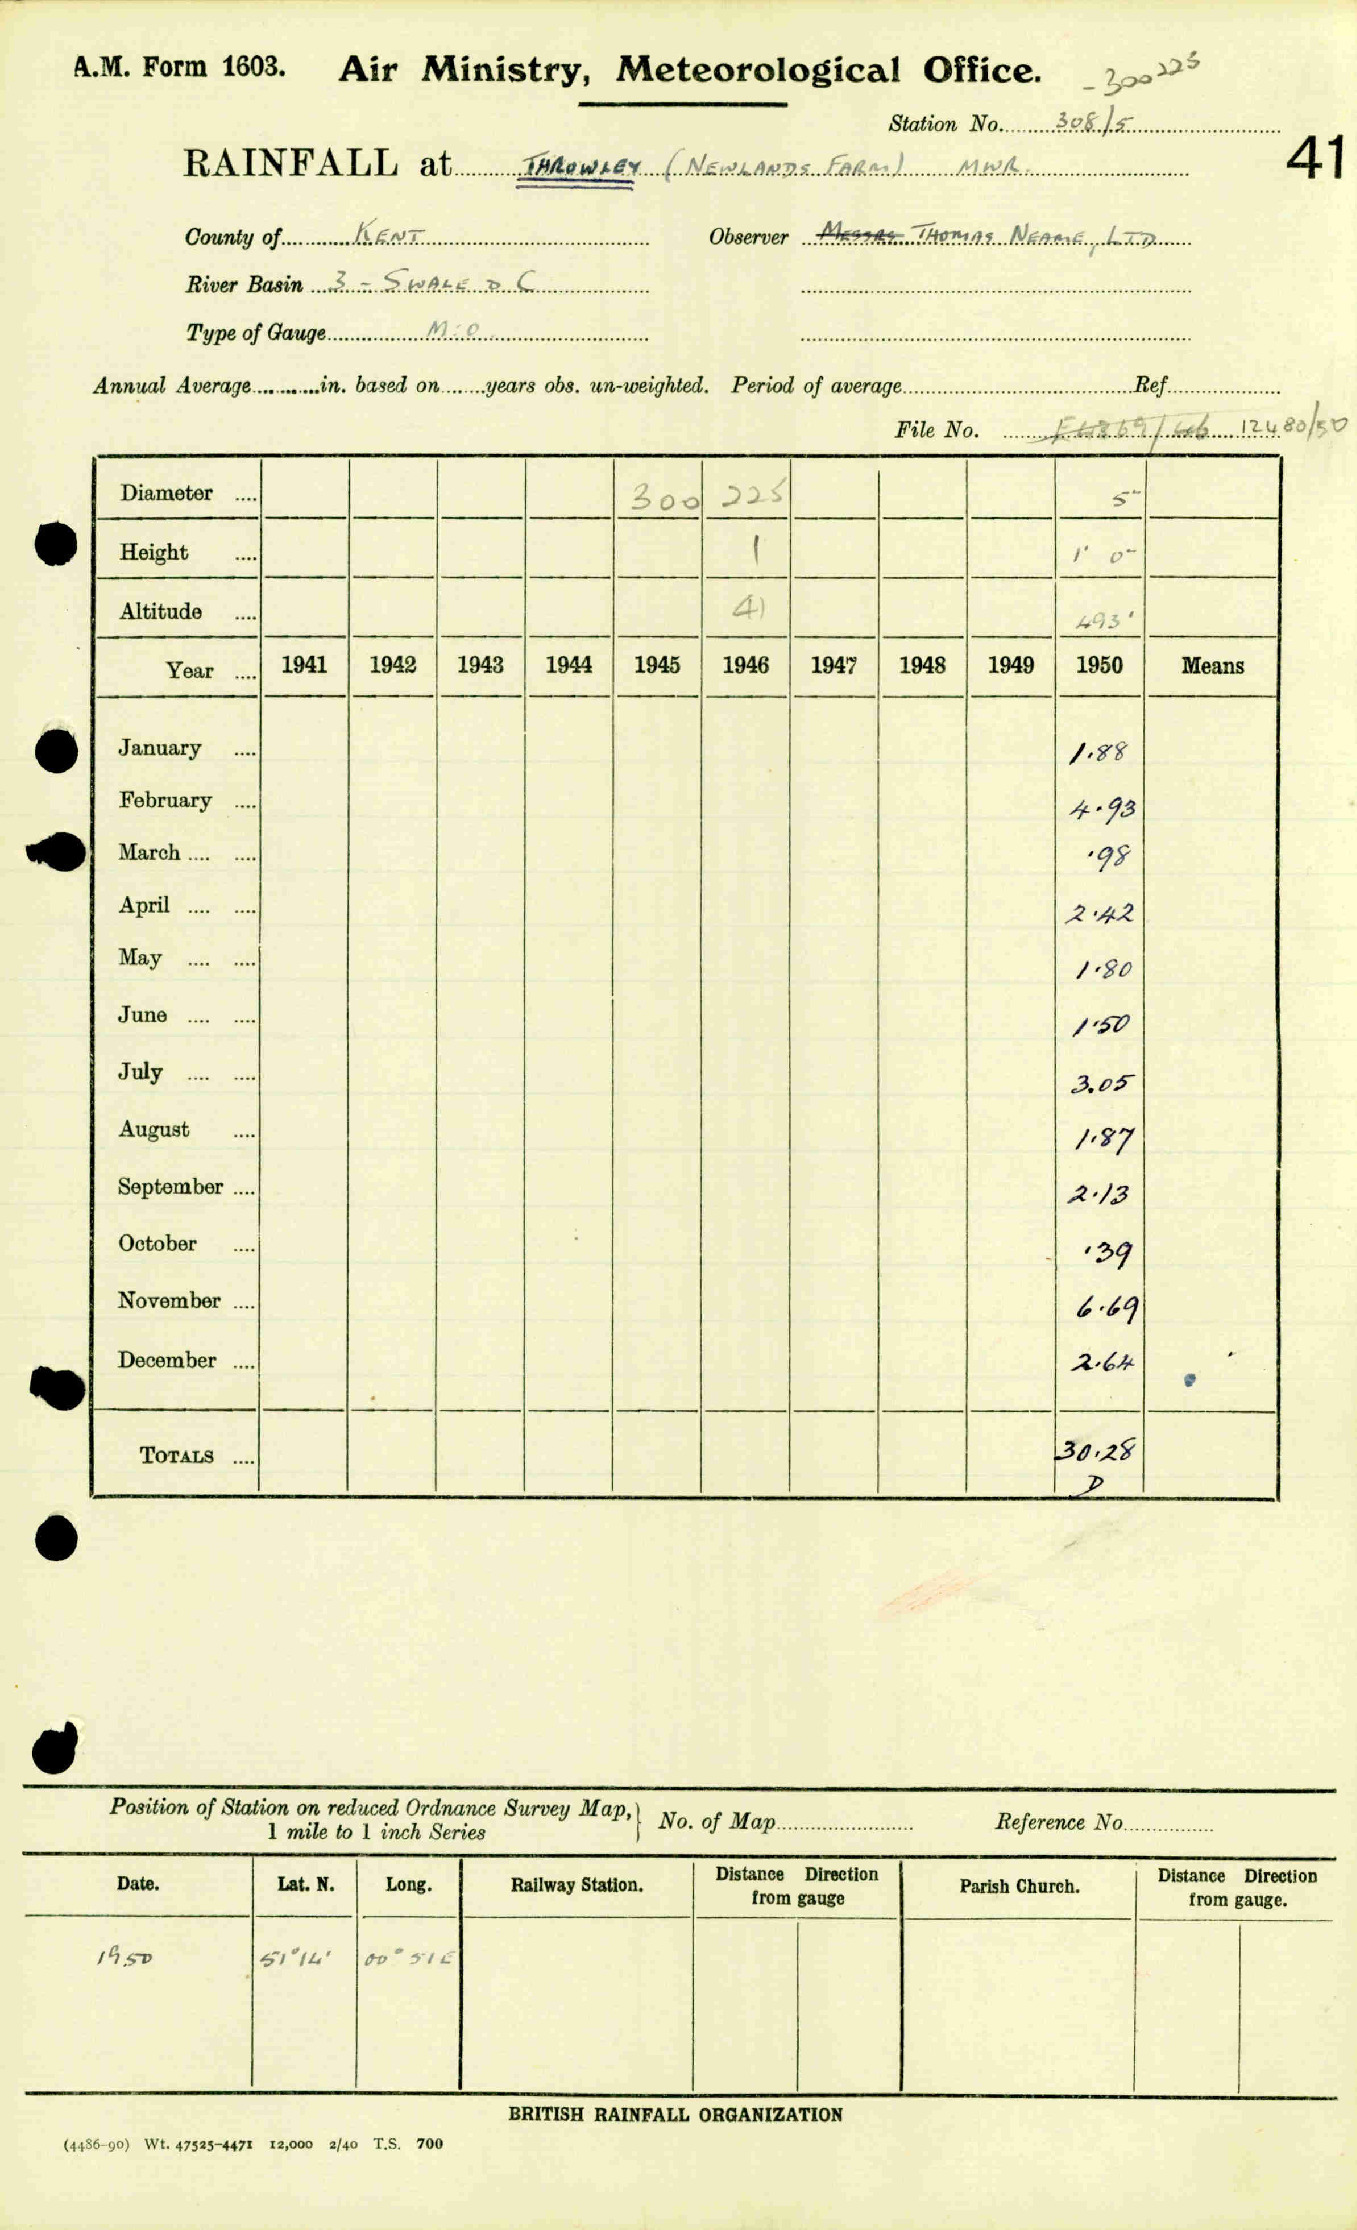 A.M. Form 1603. Air Ministry, Meteorological Office. -300225
Station No. 308/5
41
RAINFALL at THROWLEY (NEWLANDS FARM) MWR.
County of KENT Observer Messrs THOMAS NEAME, LTD
River Basin 3 - SWALE D C
Type of Gauge M.O.
Annual Average in. based on years obs. un-weighted. Period of average Ref
File No. 12480/50
Diameter .... 300 225 5"
Height .... 1 1' 0"
Altitude .... 41 493'
Year .... 1941 1942 1943 1944 1945 1946 1947 1948 1949 1950 Means
January .... 1.88
February .... 4.93
March .... .... .98
April .... .... 2.42
May .... .... 1.80
June .... .... 1.50
July .... .... 3.05
August .... 1.87
September .... 2.13
October .... .39
November .... 6.69
December .... 2.64
TOTALS .... 30.28
D
Position of Station on reduced Ordnance Survey Map,
1 mile to 1 inch Series } No. of Map Reference No.
Date. Lat. N. Long. Railway Station. Distance Direction from gauge Parish Church. Distance Direction from gauge.
1950 51°14' 00° 51 E
BRITISH RAINFALL ORGANIZATION
(4486-90) Wt. 47525-4471 12,000 2/40 T.S. 700